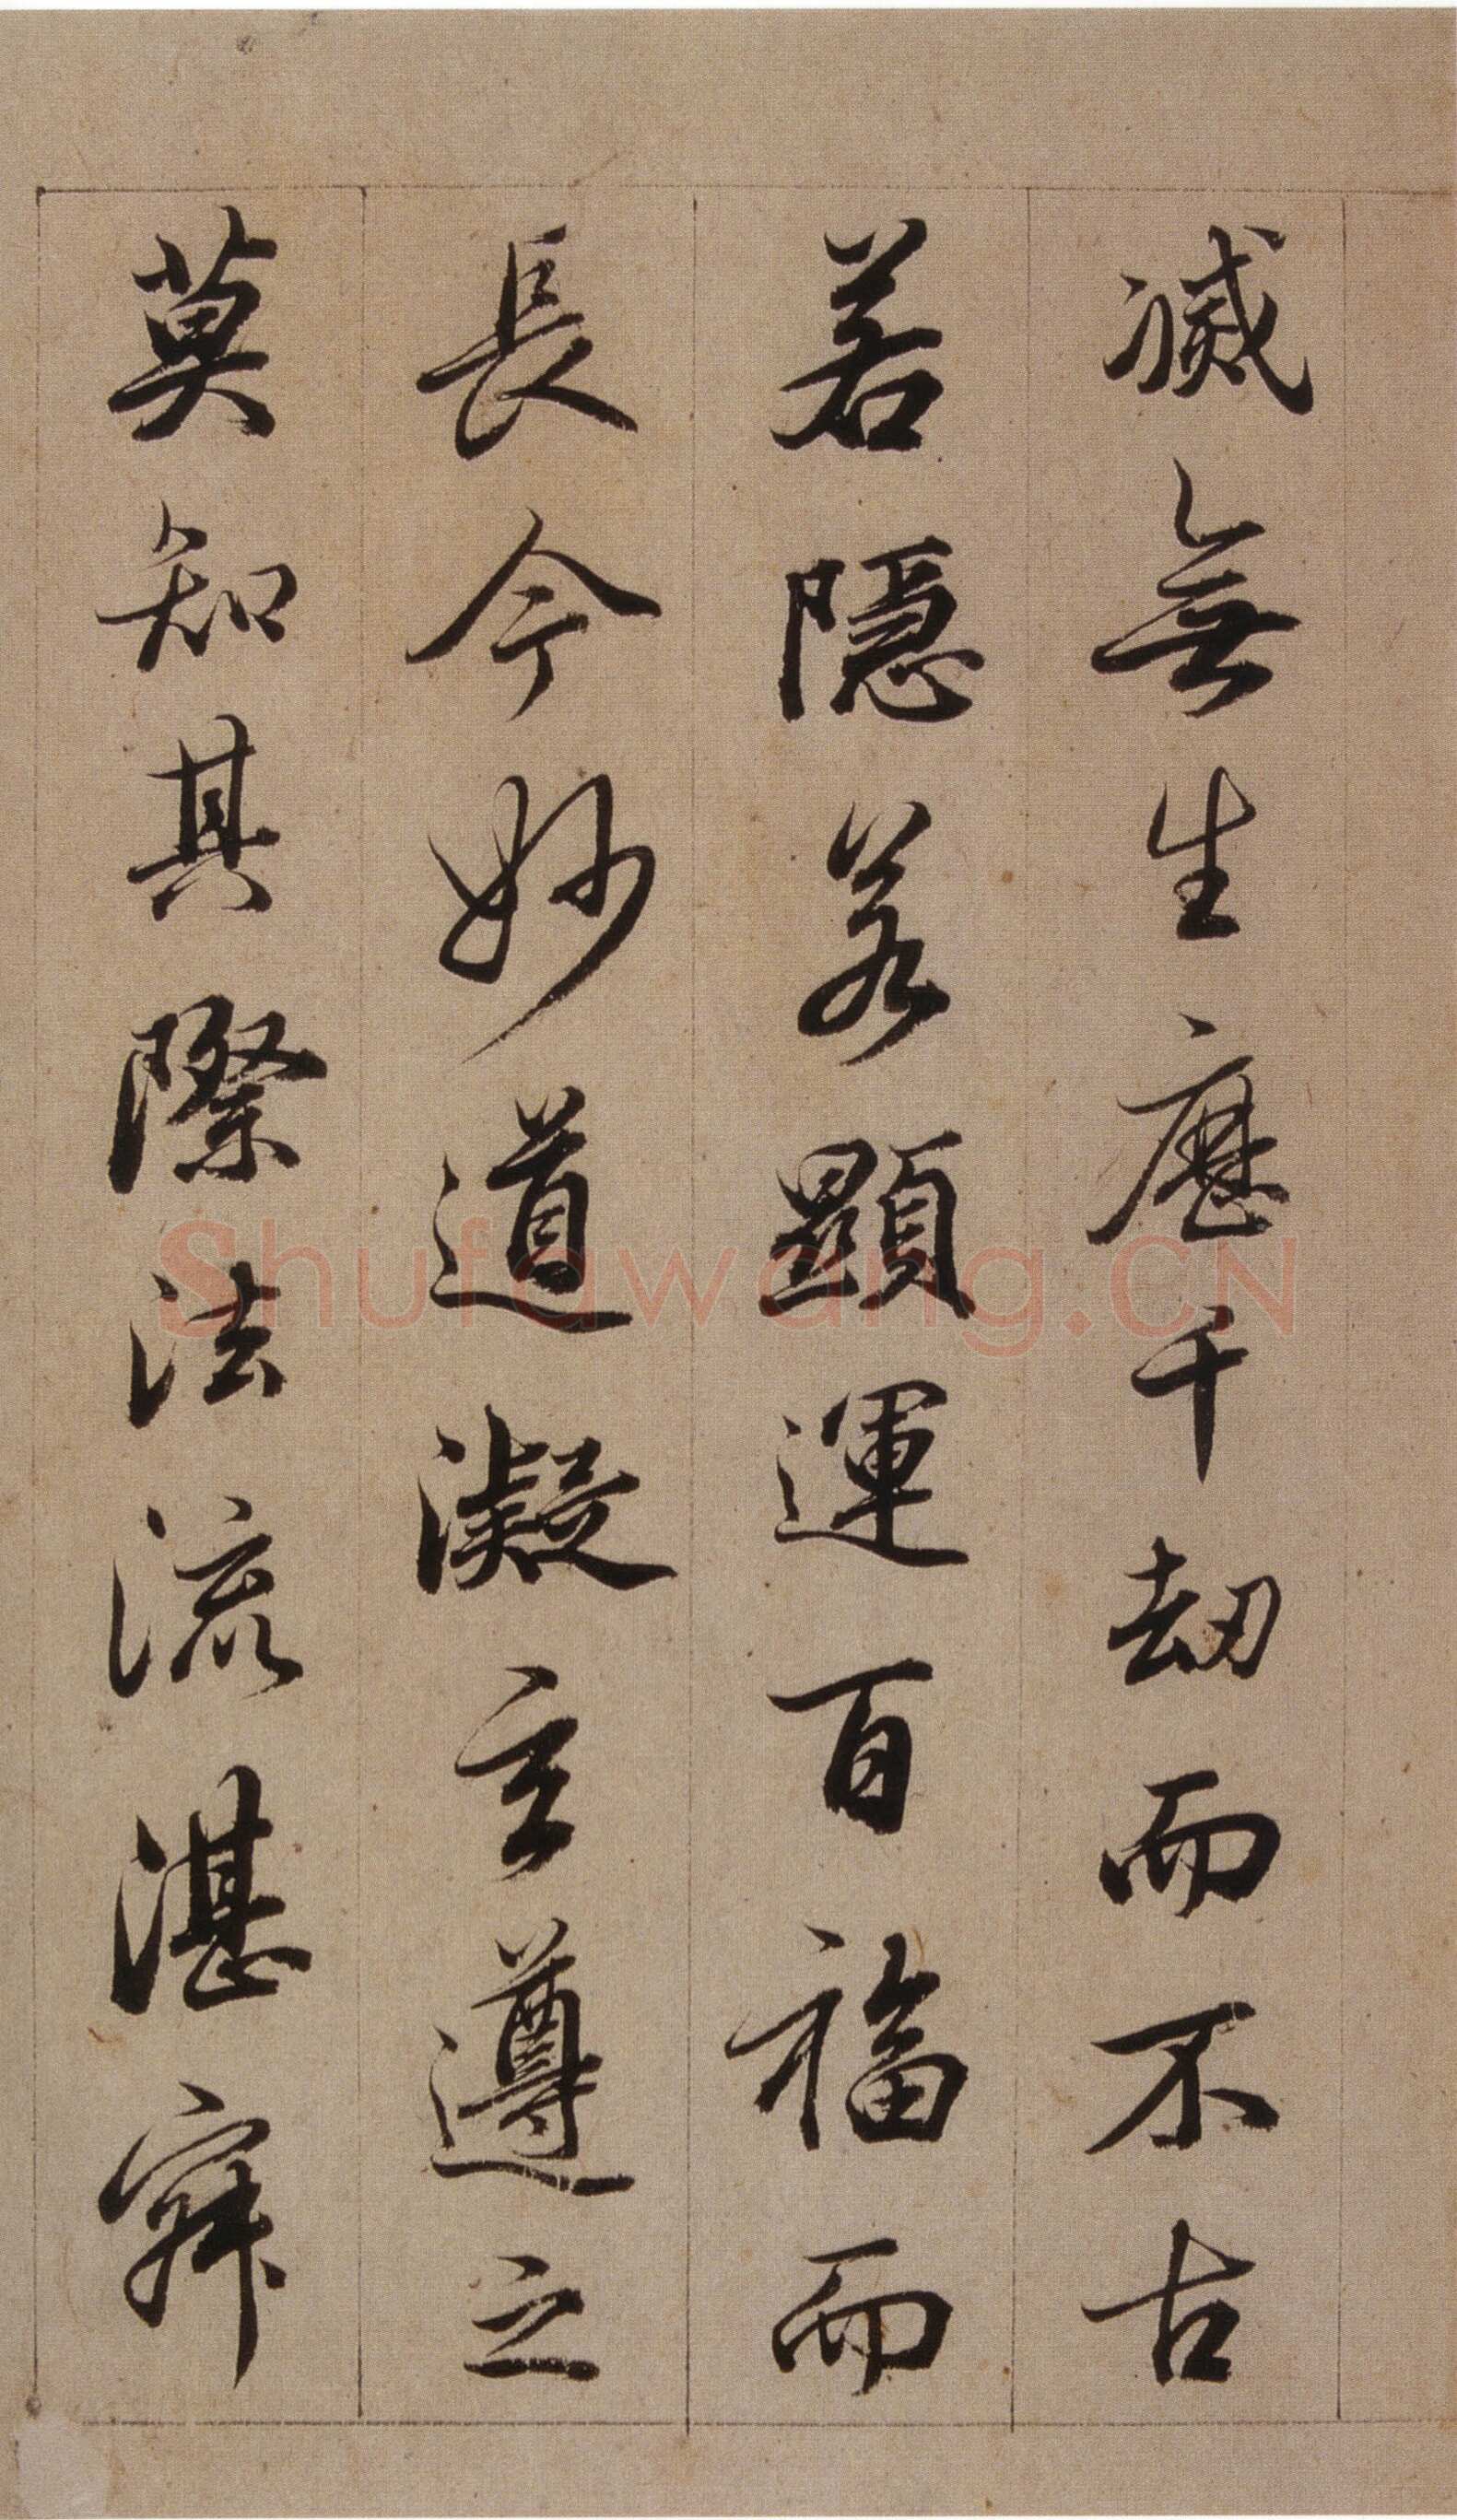 滅無生歷千劫而不古
若隱若顯運百福而
長今妙道凝玄遵之
莫知其際法流湛寂
Shufawang.CN